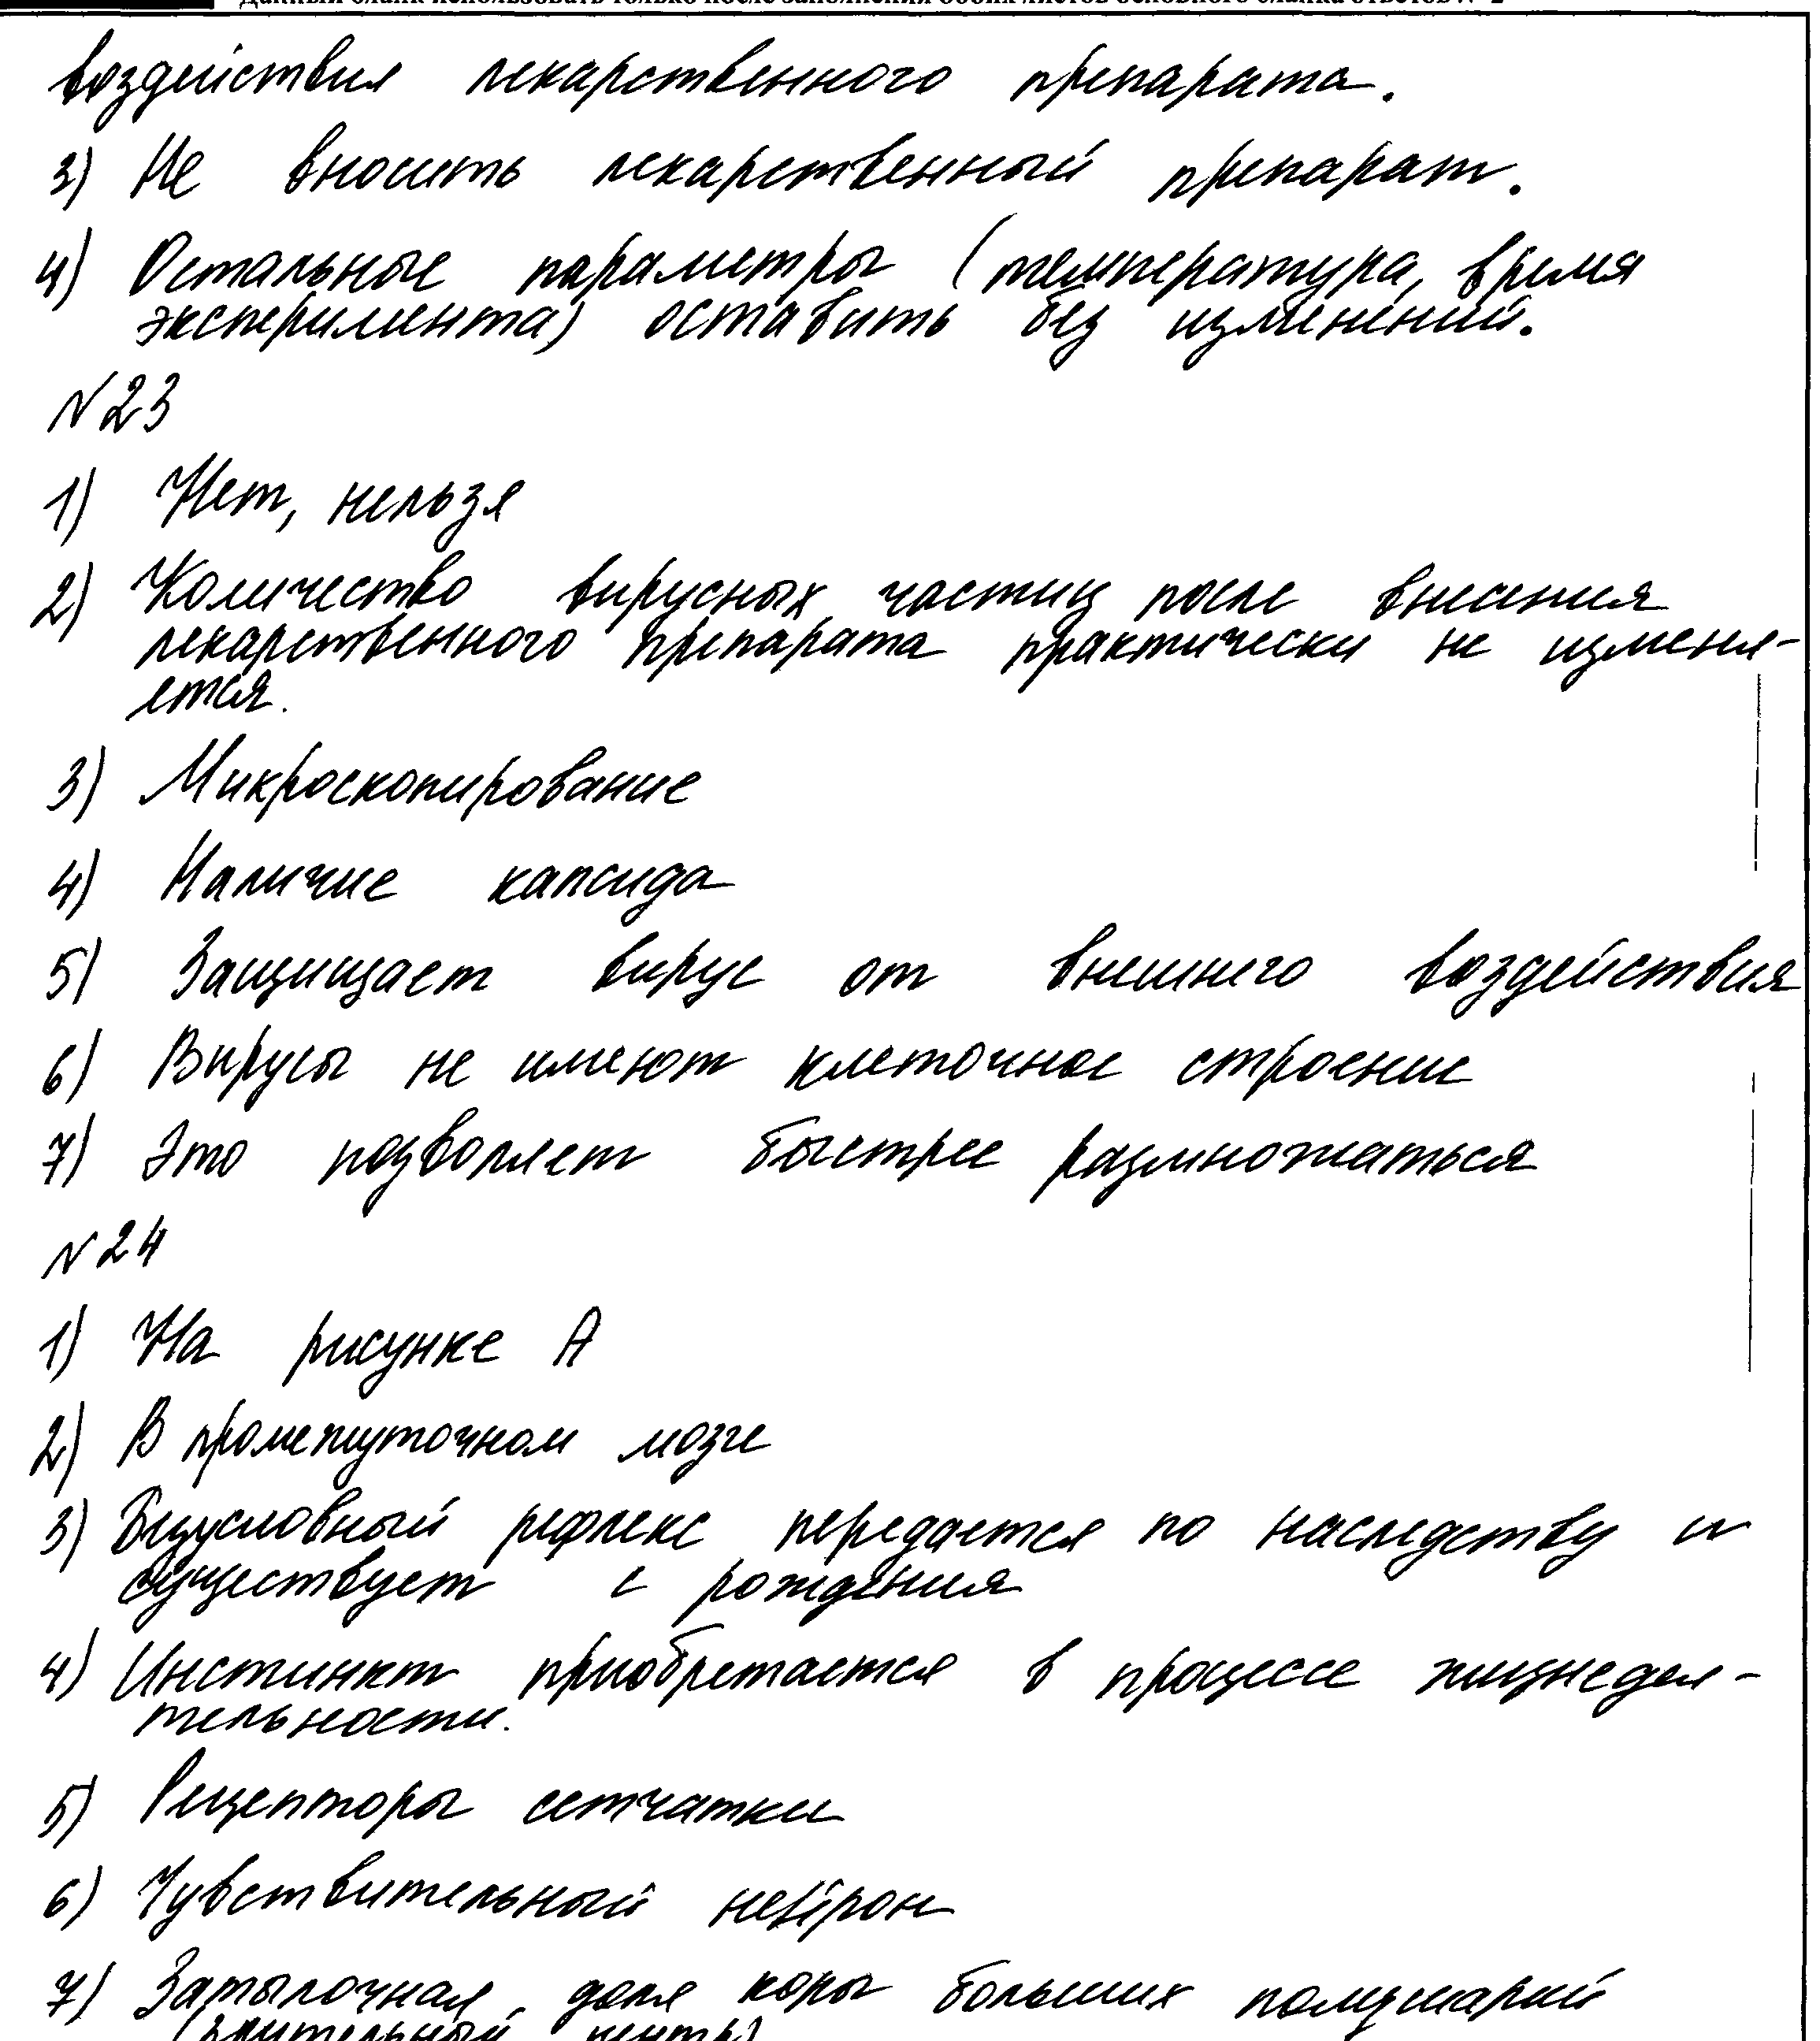 Данный бланк использовать только после заполнения обоих листов основного бланка ответов № 2
воздействия лекарственного препарата.
3) Не вносить лекарственный препарат.
4) Остальные параметры (температура, время
эксперимента) оставить без изменений.
N23
1) Нет, нельзя
2) Количество вирусных частиц после внесения
лекарственного препарата практически не изменя-
ется.
3) Микроскопирование
4) Наличие капсида
5) Защищает вирус от внешнего воздействия
6) Вирусы не имеют клеточное строение
7) Это позволяет быстрее размножаться
N24
1) На рисунке А
2) В промежуточном мозге
3) Безусловный рефлекс передается по наследству и
существует с рождения
4) Инстинкт приобретается в процессе жизнедея-
тельности.
5) Рецепторы сетчатки
6) Чувствительный нейрон
7) Затылочная доля коры больших полушарий
(зрительный центр)